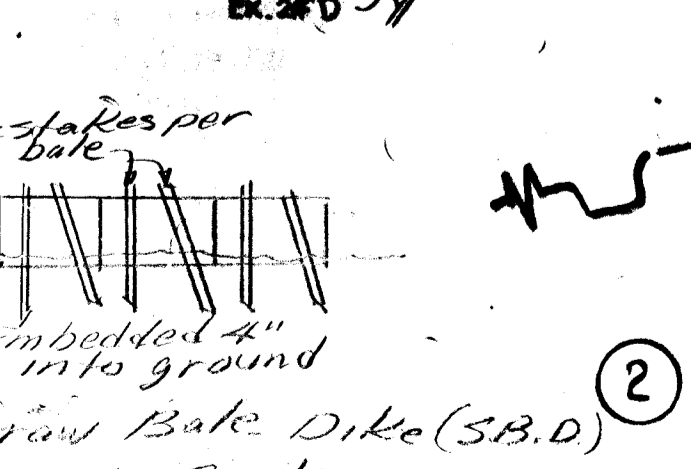 stakes per
bale
embedded 4"
into ground
2
Bale Dike (S.B.D.)